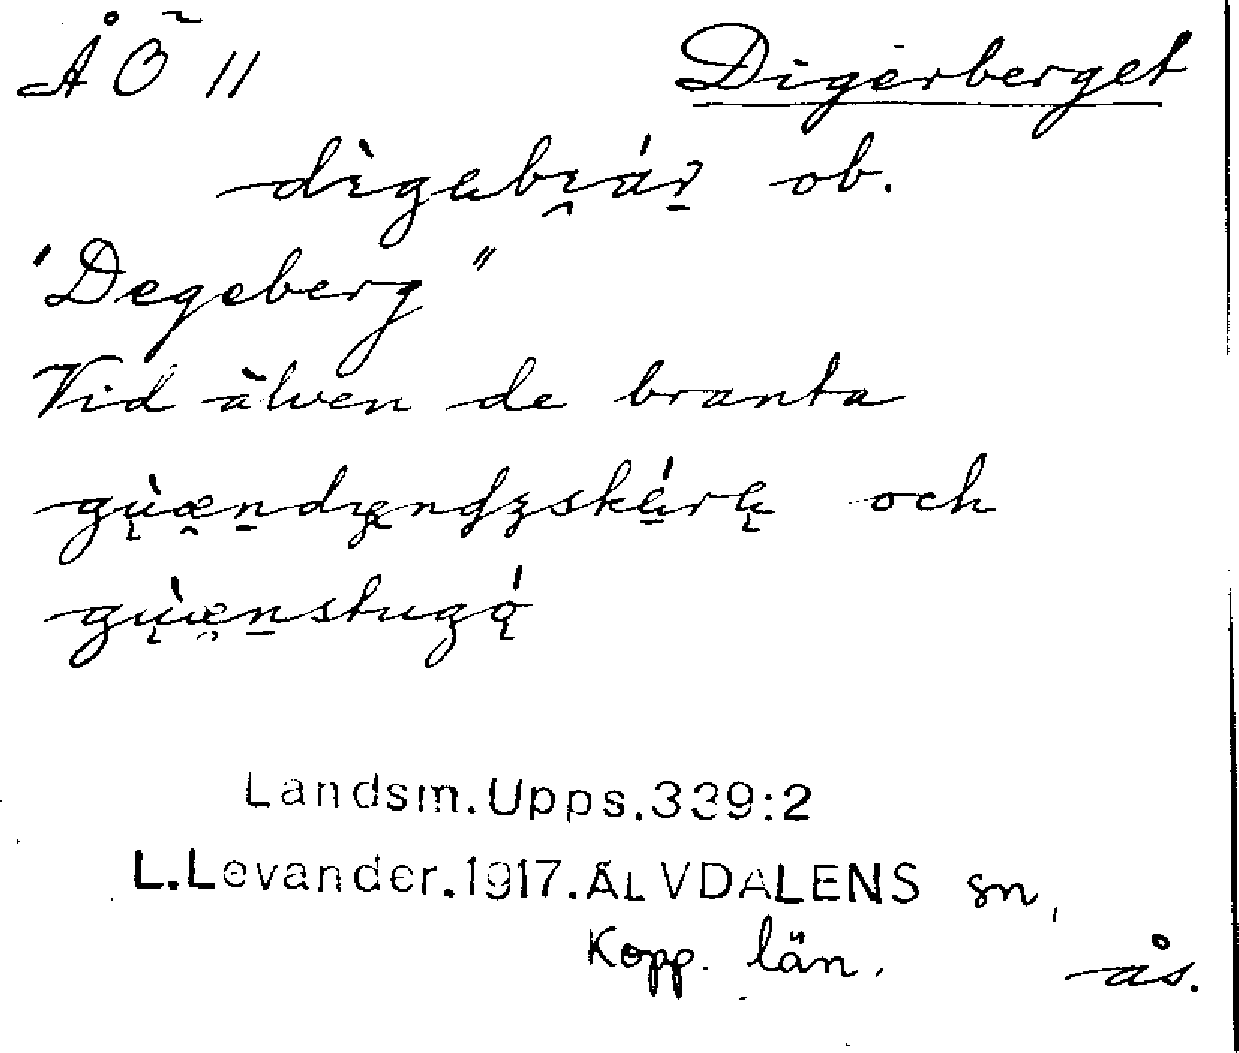 ÅÖ 11 Digerberget
dìgabı̯áṟ ob.
"Degeberg"
Vid älven de branta
och
Landsm.Upps.339:2
L.Levander.1917.ÄLVDALENS sn,
Kopp. län. ås.